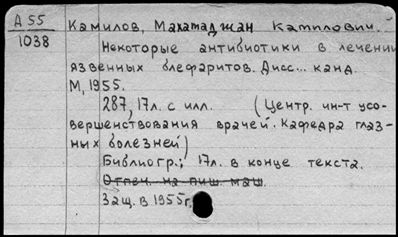 А 55
1038
Камилов, Махатаджан Камилович.
Некоторые антибиотики в лечении
язвенных блефаритов. Дисс... канд.
М, 1955.
287, 17л. с илл. (Центр. ин-т усо-
вершенствования врачей. Кафедра глаз-
ных болезней)
Библиогр.; 17л. в конце текста.
Отпеч. на пиш. маш.
Защ. в 1955г.